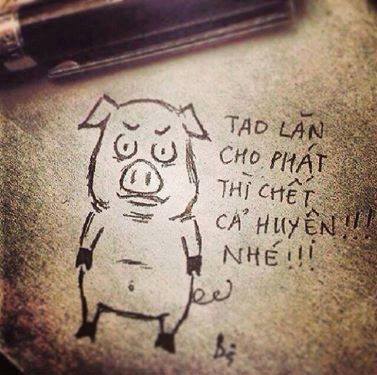 TAO LĂN
CHO PHÁT
THÌ CHẾT
CẢ HUYỆN!!!
NHÉ!!!